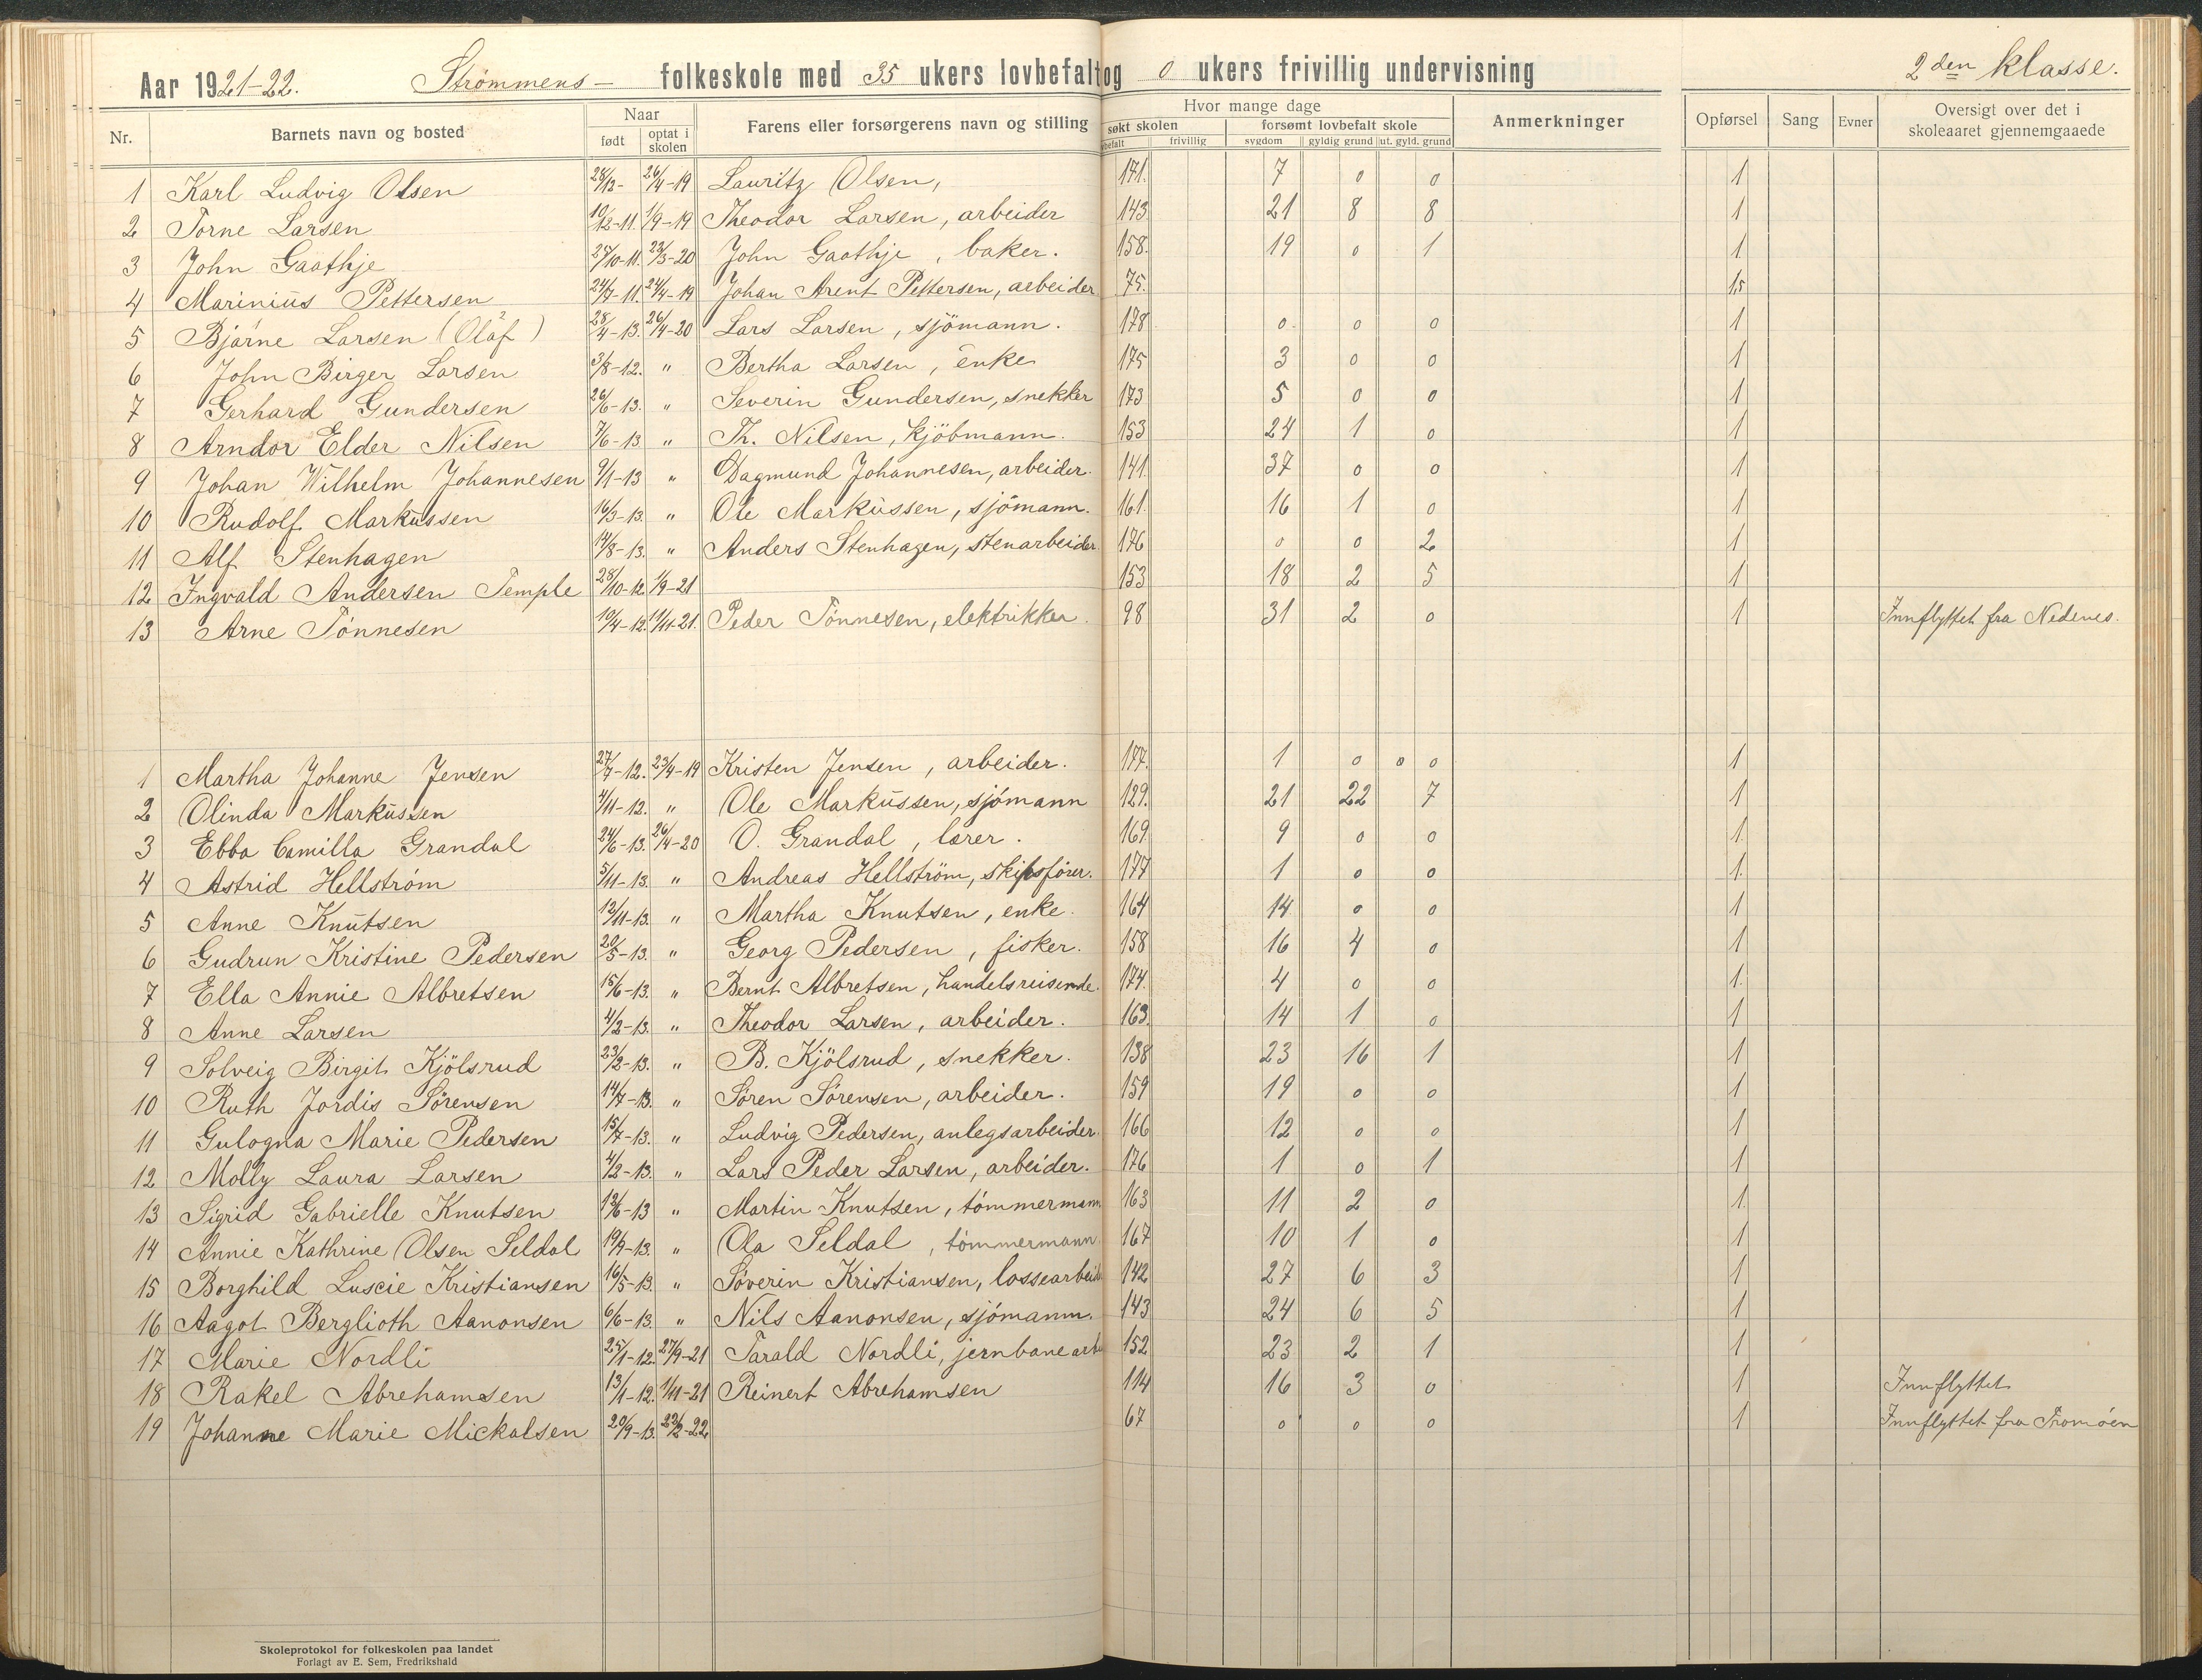 Aar 1921-22. Strømmens - folkeskole med 35 ukers lovbefalt og 0 ukers frivillig undervisning 2den klasse.
Nr. Barnets navn og bosted Naar født optat i skolen Farens eller forsørgerens navn og stilling Hvor mange dage søkt skolen frivillig forsømt lovbefalt skole sygdom gyldig grund ut. gyld. grund Anmerkninger Opførsel Sang Evner Oversigt over det i skoleaaret gjennemgaaede
1 Karl Ludvig Olsen 28/12- 26/4-19 Lauritz Olsen, 171. 7 0 0 1
2 Torne Larsen 19/12-11. 1/9-19 Theodor Larsen, arbeider 143 21 8 8 1
3 John Gaathje 25/10-11. 23/3-20 John Gaathje, baker. 158. 19 0 1 1
4 Marinius Pettersen 24/7-11. 24/4-19 Johan Arent Pettersen, arbeider 75. 1,5
5 Bjarne Larsen (Olaf) 28/4-13. 26/4-20 Lars Larsen, sjömann. 178 0 0 0 1
6 John Birger Larsen 3/8-12. " Bertha Larsen, enke 175 3 0 0 1
7 Gerhard Gundersen 26/6-13. " Severin Gundersen, snekker 173 5 0 0 1
8 Arndor Elder Nilsen 7/6-13 " Th. Nilsen, kjöbmann. 153 24 1 0 1
9 Johan Wilhelm Johannesen 9/1-13 " Dagmund Johannesen, arbeider. 141 37 0 0 1
10 Rudolf Markussen 16/3-13. " Ole Markussen, sjömann. 161. 16 1 0 1
11 Alf Stenhagen 14/8-13. " Anders Stenhagen, stenarbeider. 176 0 0 2 1
12 Ingvald Andersen Temple 28/10-12 1/9-21 153 18 2 5 1
13 Arne Tönnesen 10/4-12. 11/11-21. Peder Tönnesen, elektrikker. 98 31 2 0 1 Innflyttet fra Nedenes.
1 Martha Johanne Jensen 27/7-12. 23/4-19 Kristen Jensen, arbeider. 177. 1 0 0 0 1
2 Olinda Markussen 4/11-12. " Ole Markussen, sjömann 129. 21 22 7 1
3 Ebba Camilla Grandal 24/6-13. 26/4-20 O. Grandal, lærer. 169 9 0 0 1
4 Astrid Hellström 5/11-13. " Andreas Hellström, skipsförer. 177 1 0 0 1
5 Anne Knutsen 12/11-13. " Martha Knutsen, enke. 164 14 0 0 1
6 Gudrun Kristine Pedersen 20/5-13. " Georg Pedersen, fisker. 158 16 4 0 1
7 Ella Annie Albretsen 15/6-13. " Bernt Albretsen, handelsreisende. 174. 4 0 0 1
8 Anne Larsen 4/2-13. " Theodor Larsen, arbeider. 163 14 1 0 1
9 Solveig Birgit Kjölsrud 23/2-13. " B. Kjölsrud, snekker. 138 23 16 1 1
10 Ruth Jordis Sörensen 14/7-13. " Sören Sörensen, arbeider. 159 19 0 0 1
11 Gulogna Marie Pedersen 15/7-13. " Ludvig Pedersen, anlegsarbeider. 166 12 0 0 1
12 Molly Laura Larsen 4/2-13. " Lars Peder Larsen, arbeider. 176 1 0 1 1
13 Sigrid Gabrielle Knutsen " Martin Knutsen, tömmermann. 163 11 2 0 1
14 Annie Kathrine Olsen Seldal 19/9-13. " Ola Seldal, tömmermann 167 10 1 0 1
15 Borghild Luscie Kristiansen 16/5-13. " Söverin Kristiansen, lossearbeid 142 27 6 3 1
16 Aagot Berglioth Aanonsen 6/6-13. " Nils Aanonsen, sjömann. 143 24 6 5 1
17 Marie Nordli 25/1-12. 27/9-21 Tarald Nordli, jernbanearb 152 23 2 1 1
18 Rakel Abrehamsen 13/1-12. 1/11-21 Reinert Abrehamsen 114 16 3 0 1 Innflyttet
19 Johanne Marie Mickalsen 20/9-13. 23/2-22 67 0 0 0 1 Innflyttet fra Tromöen
Skoleprotokol for folkeskolen paa landet
Forlagt av E. Sem, Fredrikshald